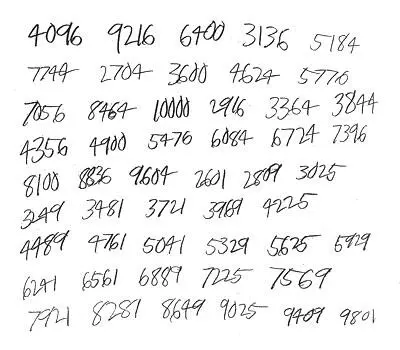 4096 9216 6400 3136 5184
7744 2704 3600 4624 5776
7056 8464 10000 2916 3364 3844
4356 4900 5476 6084 6724 7396
8100 8836 9604 2601 2809 3025
3249 3481 3721 3969 4225
4489 4761 5041 5329 5625 5929
6241 6561 6889 7225 7569
7921 8281 8649 9025 9409 9801